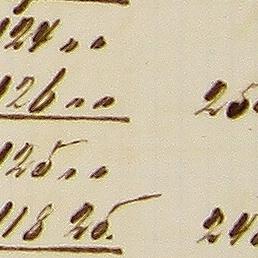 124 " "
126 " " 25
125 " "
118 25. 24